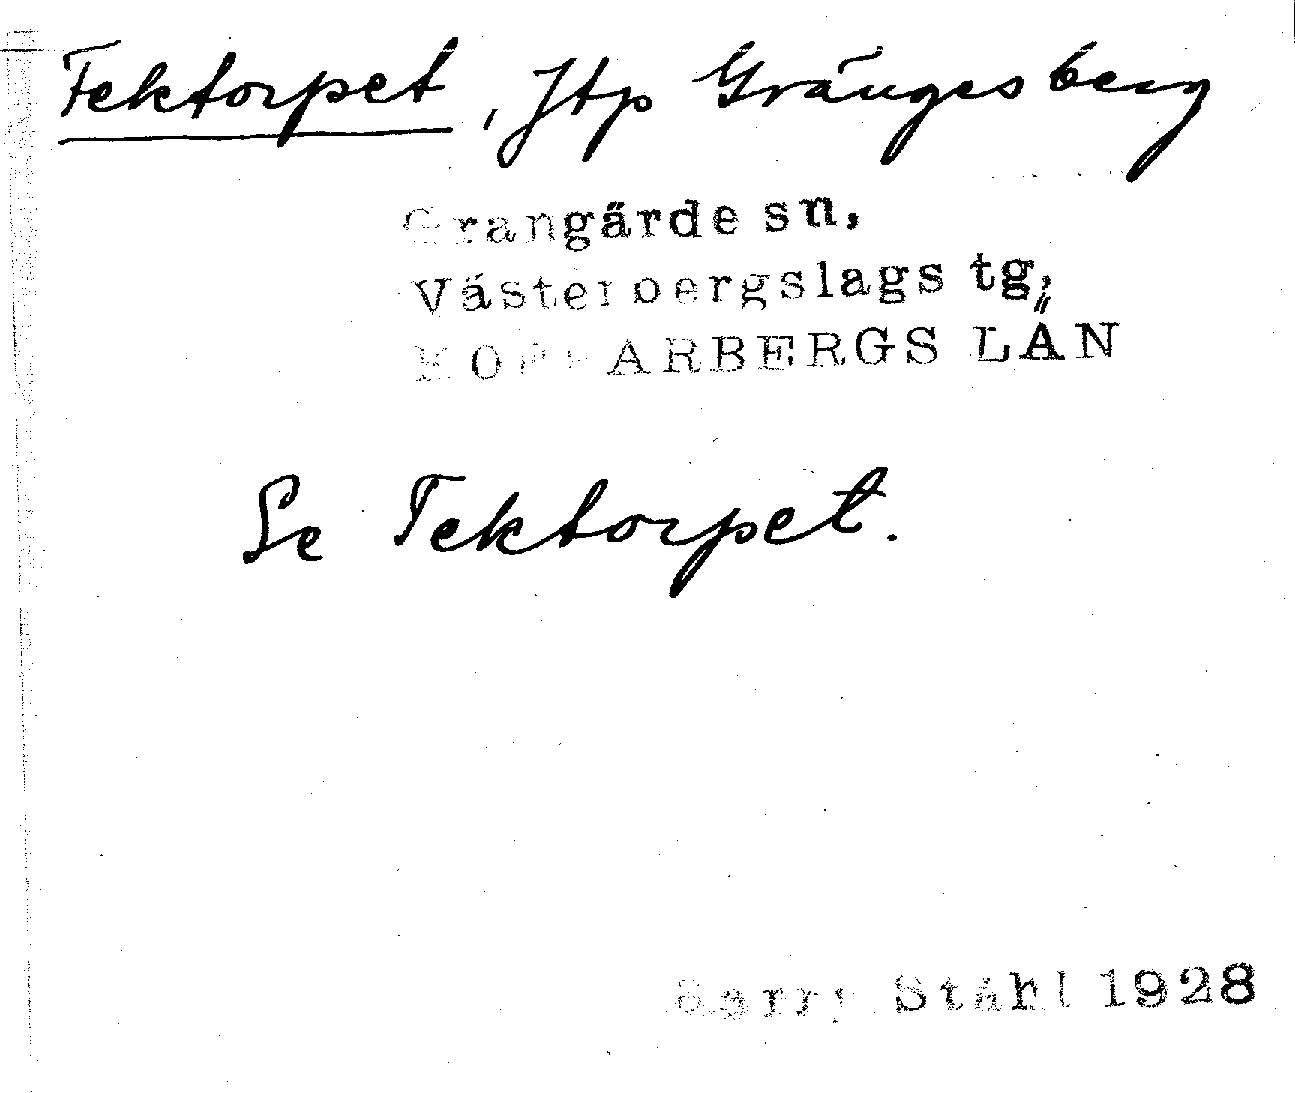 Tektorpet, Jtp Grängesberg
Grangärde sn,
Västerbergslags tg,
KOPPARBERGS LÄN
Se Tektorpet.
Harry Ståhl 1928